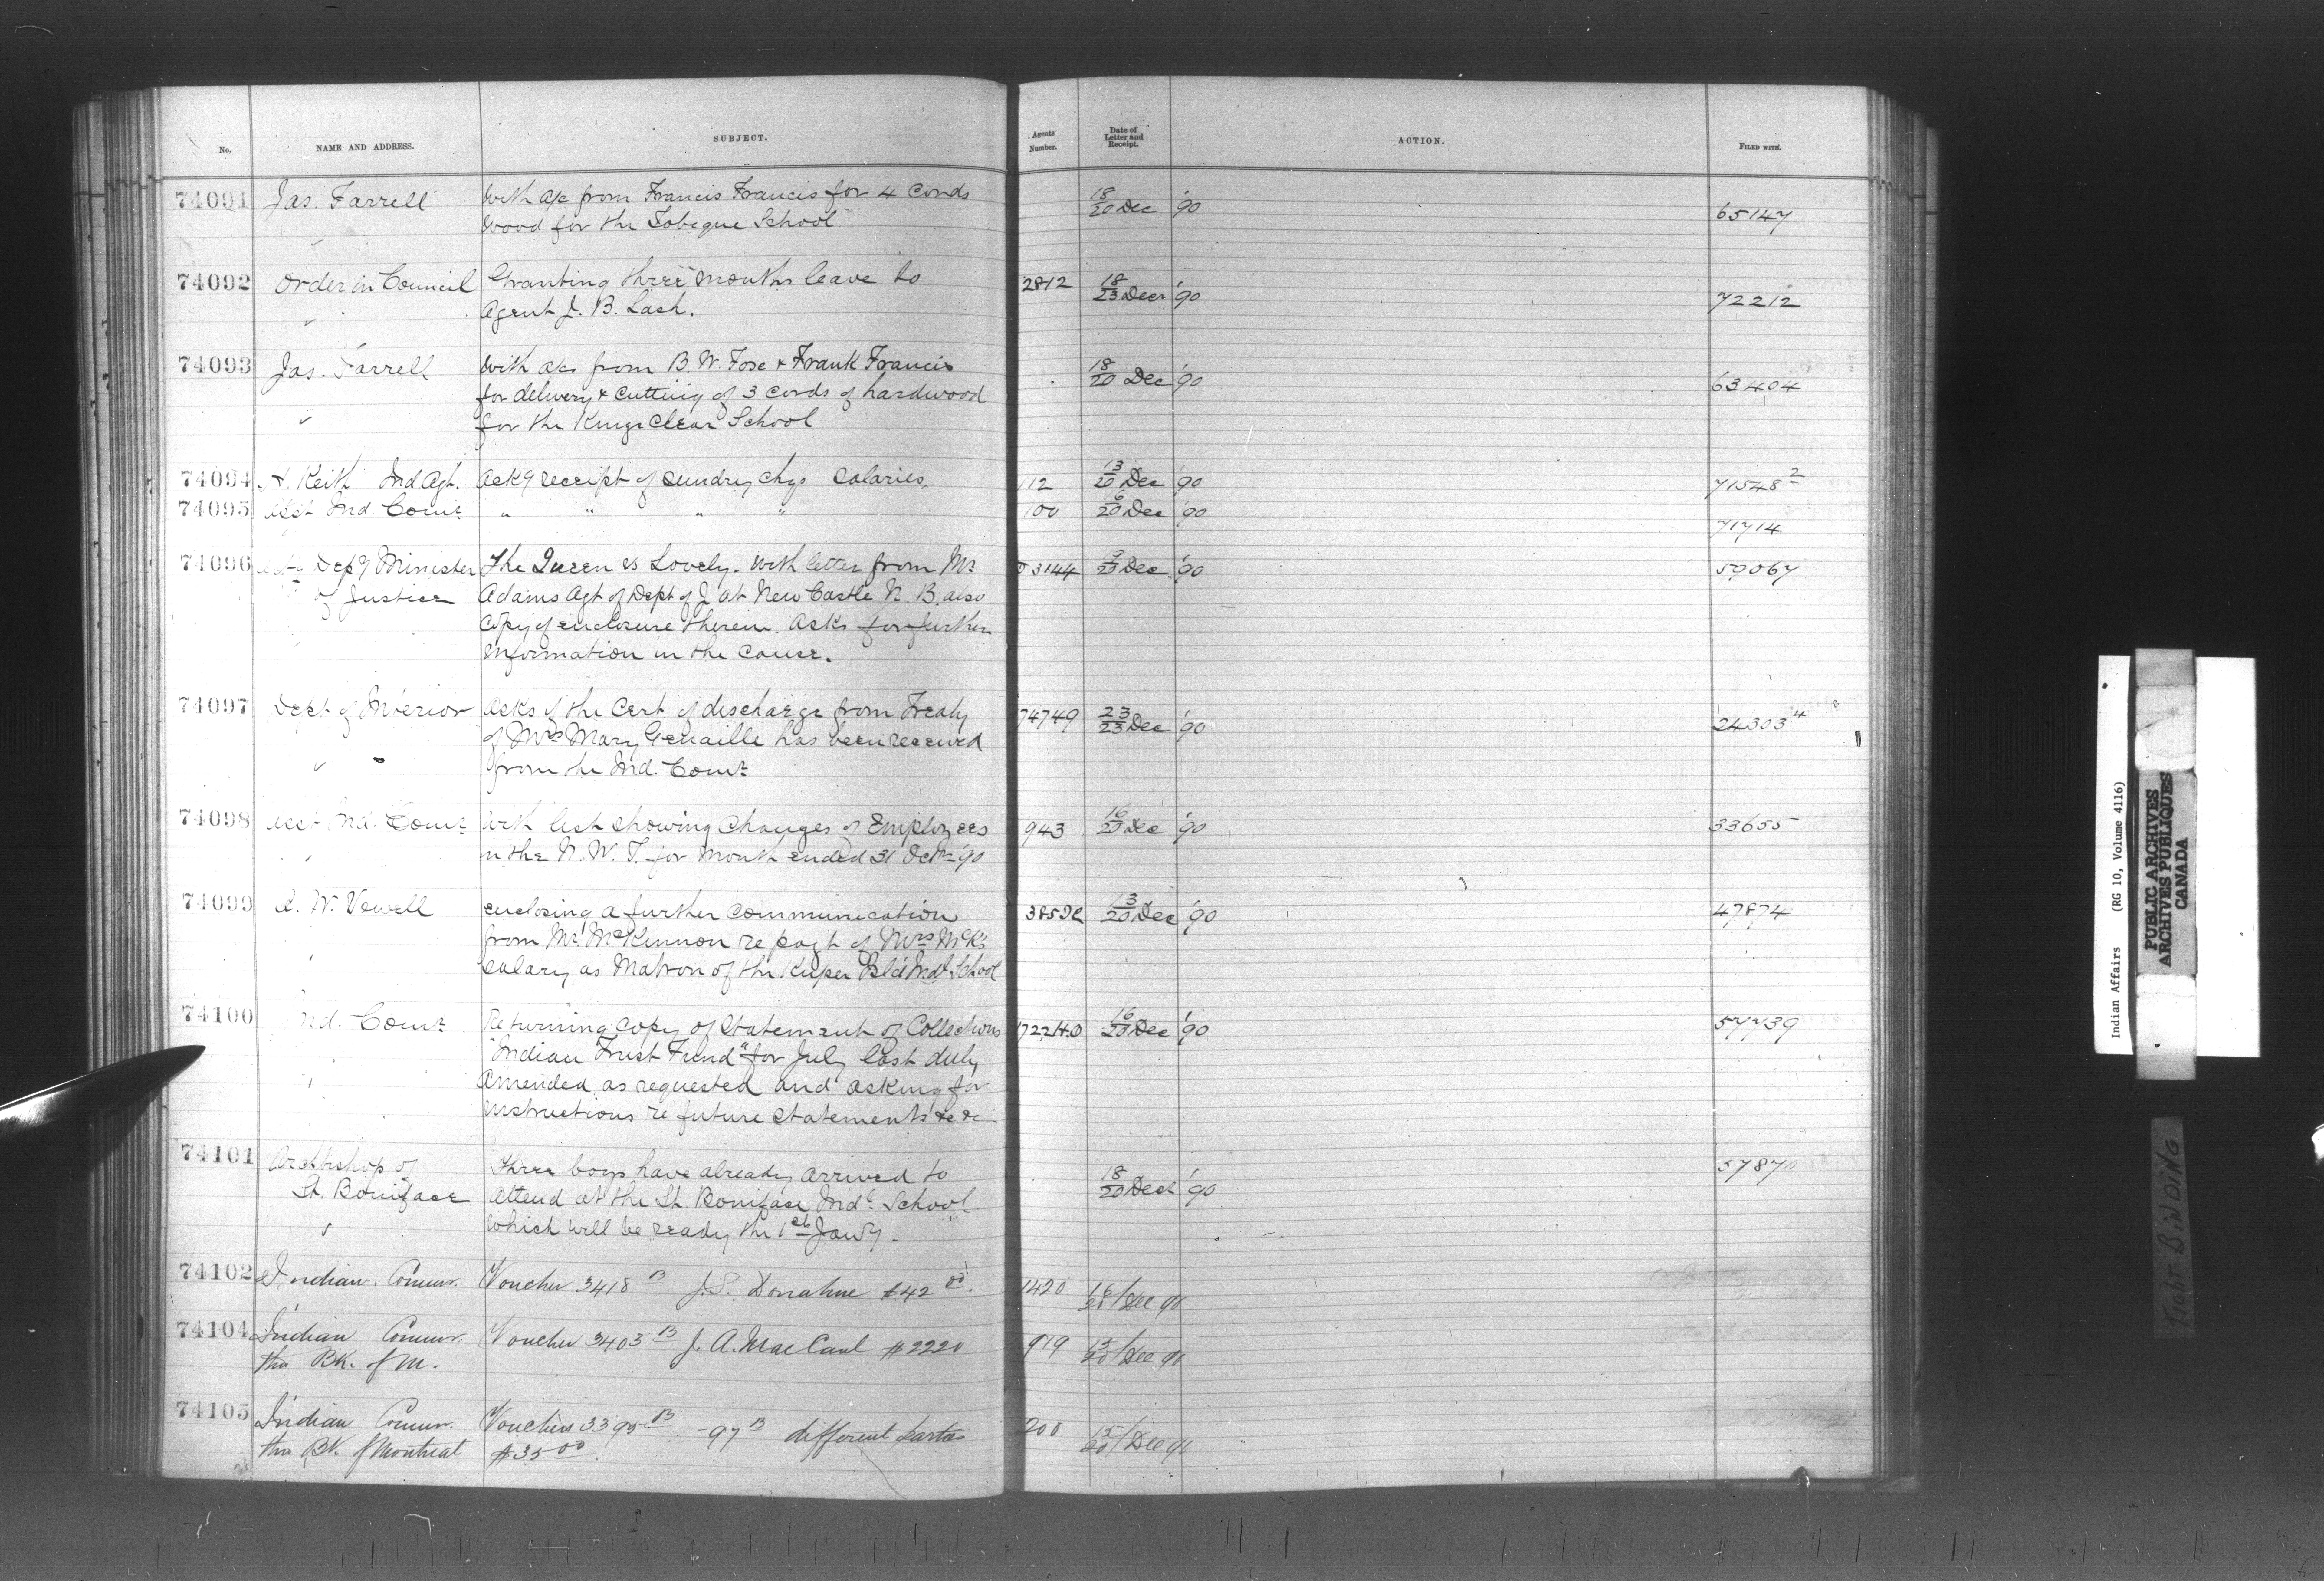 No. NAME AND ADDRESS. SUBJECT. Agents Number. Date of Letter and Receipt. ACTION. FILED WITH.
74091 Jas. Farrell With a/c from Francis Francis for 4 Cords 18/20 Dec '90 65147
wood for the Tobique School
74092 Order in Council Granting three months leave to 2812 18/23 Decr '90 72212
Agent J. B. Lash.
74093 Jas. Farrell With a/cs from B. W. Fose & Frank Francis 18/20 Dec '90 63404
for delivery & cutting of 3 cords of hardwood
for the Kings Clear School
74094 Keith Ind Agt. Ackg receipt of sundry chqs salaries. 112 13/20 Dec '90 71548 2
74095 Asst Ind. Comr " " " " 100 16/20 Dec '90 71714
74096 Depy Minister The Queen vs Lovely. With letter from Mr 3144 /23 Dec '90 59067
of Justice Adams Agt of Dept of J at New Castle N. B. also
Copy of enclosure therein. Asks for further
information in the cause.
74097 Dept of Interior Asks if the Cert of discharge from Treaty 74749 23/23 Dec '90 24303 4
of Mrs Mary Genaille has been received
" from the Ind. Comr
74098 Asst Ind. Comr With list showing Changes of Employees 943 16/20 Dec '90 33655
in the N. W. T. for month ended 31 Octr '90
74099 A. W. Vowell Enclosing a further communication 385 13/20 Dec '90 47874
from Mr McKinnon re payt of Mrs McK's
salary as Matron of the Kuper Isld Indl School
74100 Ind. Comr Returning copy of Statement of Collections 16/20 Dec '90 57739
"Indian Trust Fund" for July last duly
Amended as requested and asking for
instructions re future statements &c &c
74101 Archbishop of Three boys have already arrived to 18/20 Dec '90 5787
St. Boniface attend at the St. Boniface Indl School
which will be ready the 1st Jany.
74102 Indian Commr. Voucher 3418 B J. S. Donahue $42 00. 1420 /Dec 90
74104 Indian Commr. Voucher 3403 B J. A. MacCaul $2220 919 15/20/Dec 90
thro BK. of M.
74105 Indian Commr. Vouchers 3395 B - 97 B different parties 200 15/20/Dec 90
thro BK. of Montreal $35 00.
Indian Affairs (RG 10, Volume 4116)
PUBLIC ARCHIVES
ARCHIVES PUBLIQUES
CANADA
TIGHT BINDING